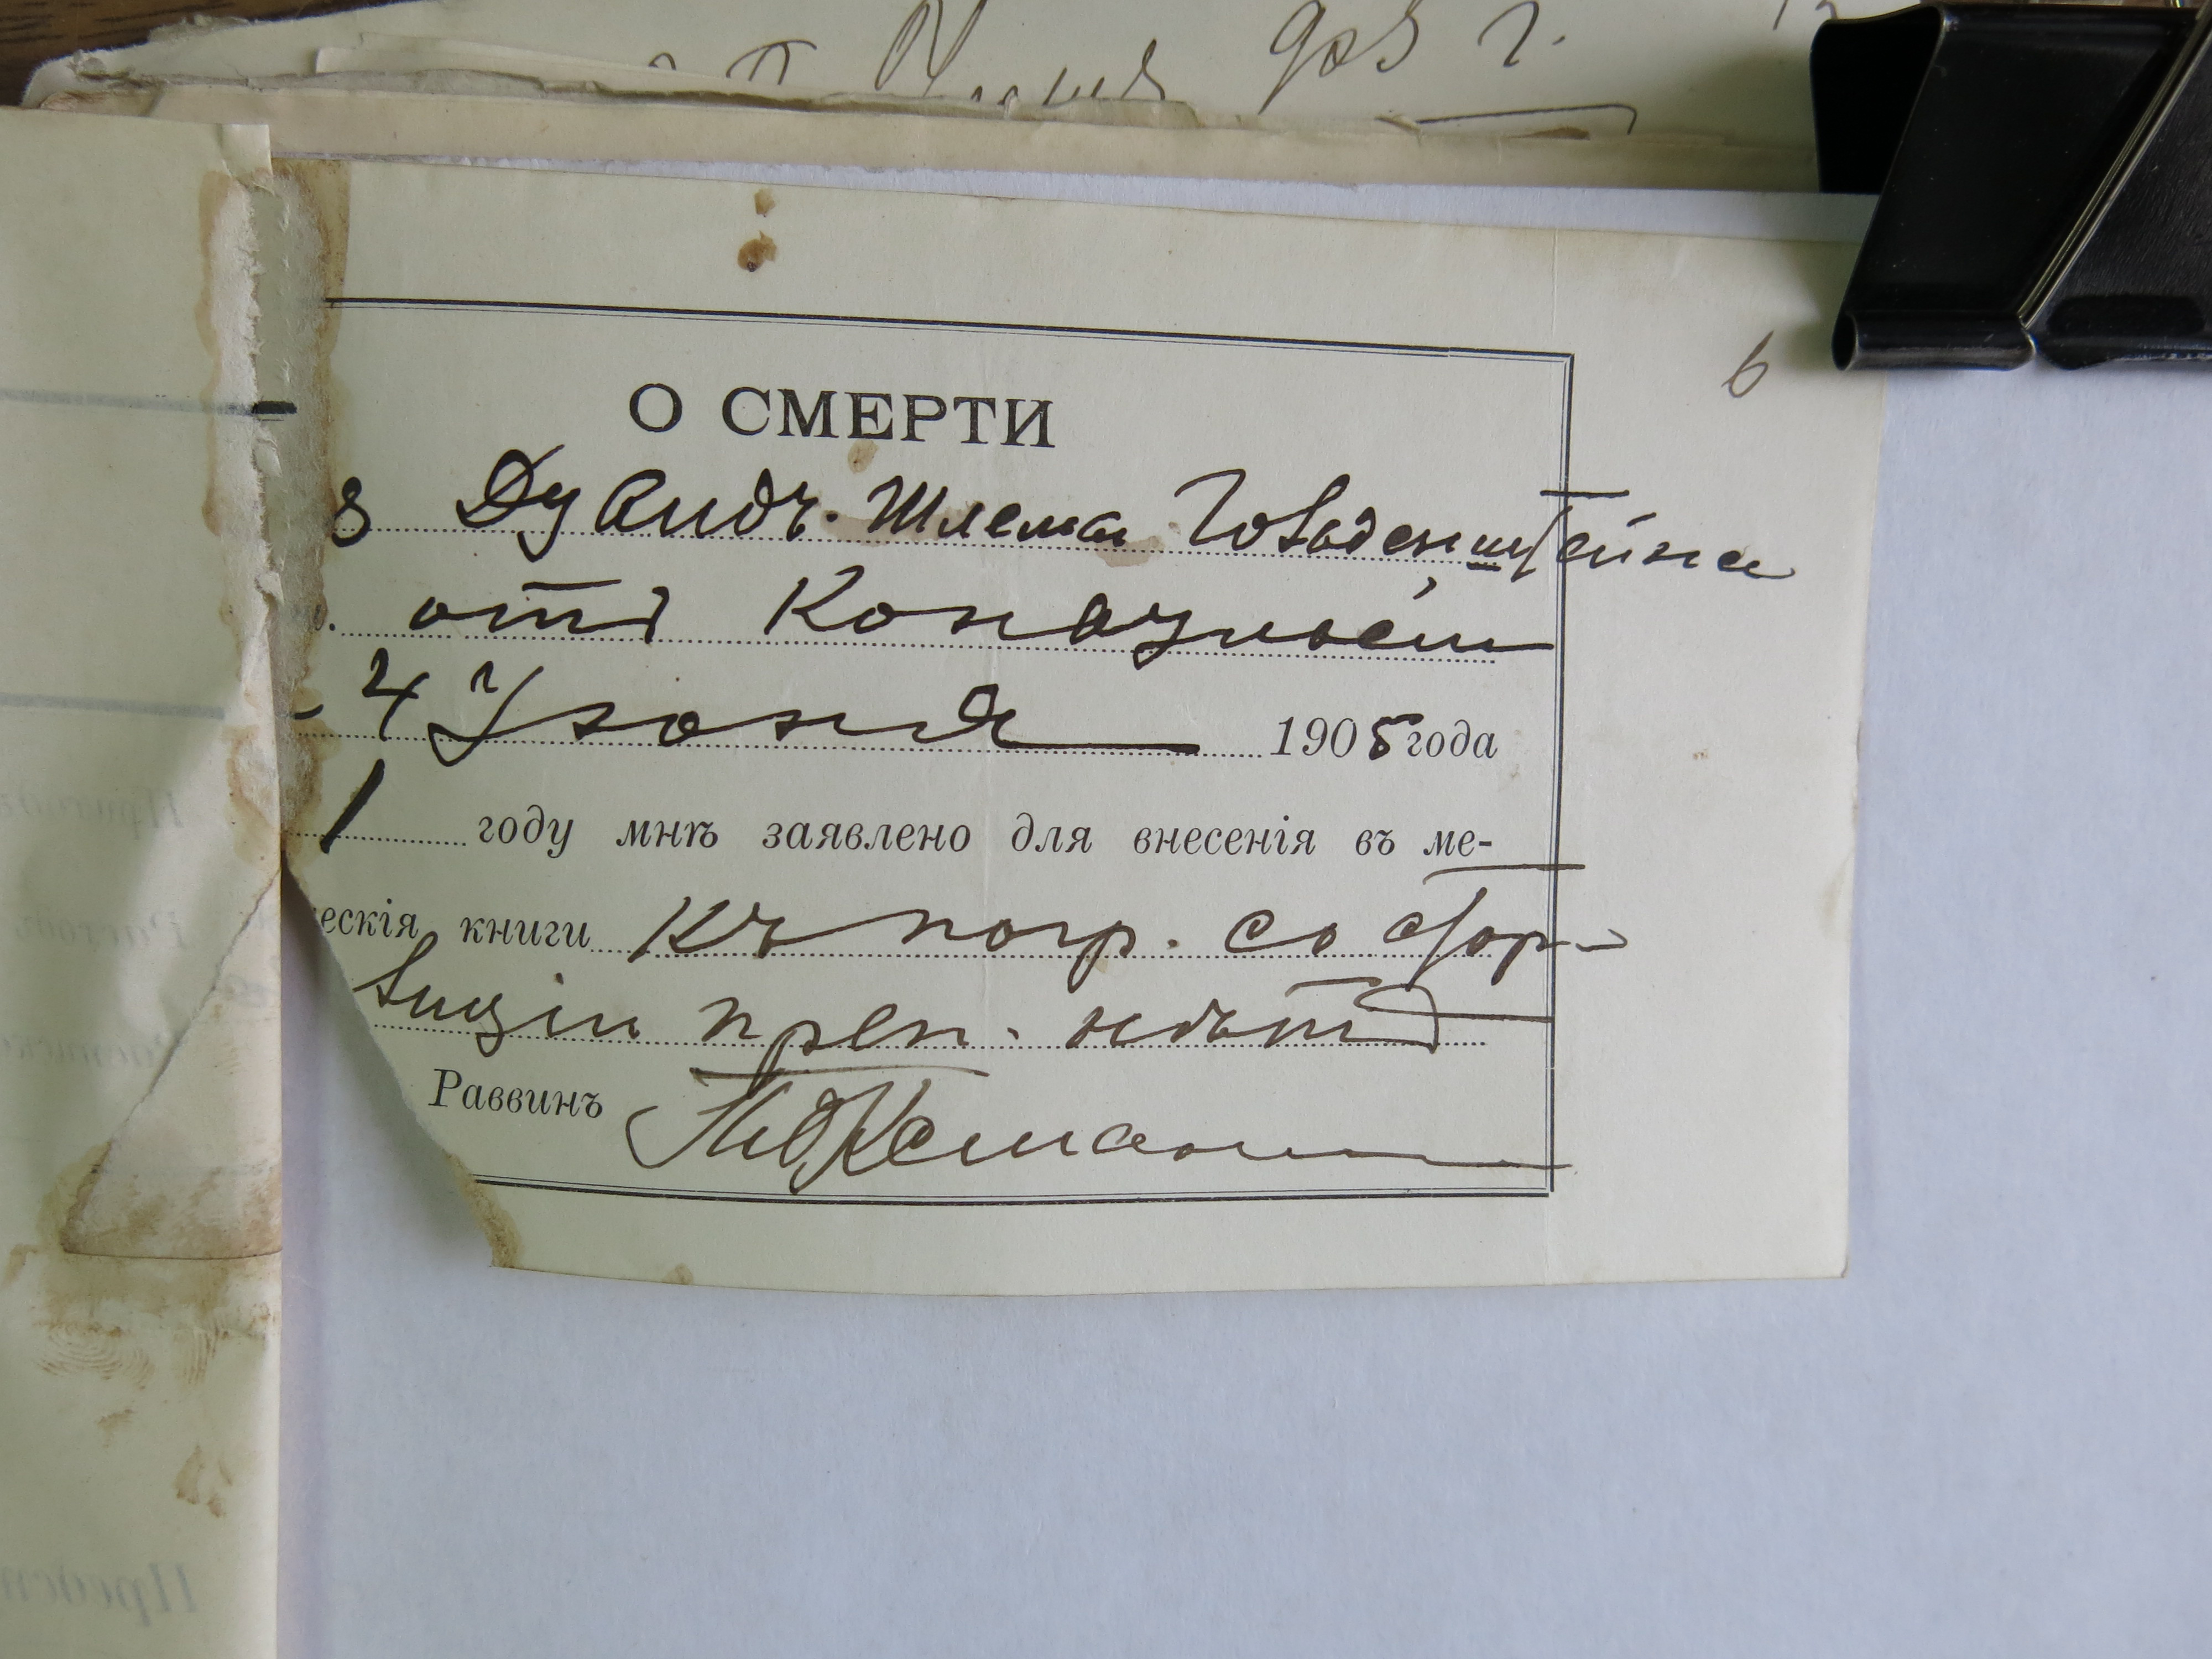 905 г.
6
О СМЕРТИ
Давидъ-Шлема Гольденштейна
отъ Конвульсіи
4 Іюня 1905 года
1 году мнѣ заявлено для внесенія въ ме-
ескія книги Къ погр. со стор-
полиціи преп. нѣтъ
Раввинъ